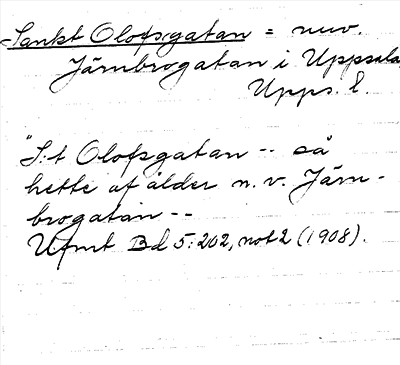 Sankt Olofsgatan = nuv.
Järnbrogatan i Uppsala,
Upps. l.
"S:t Olofsgatan -- så
hette af ålder n. v. Järn-
brogatan --
Ufmt Bd 5:202, not 2 (1908).